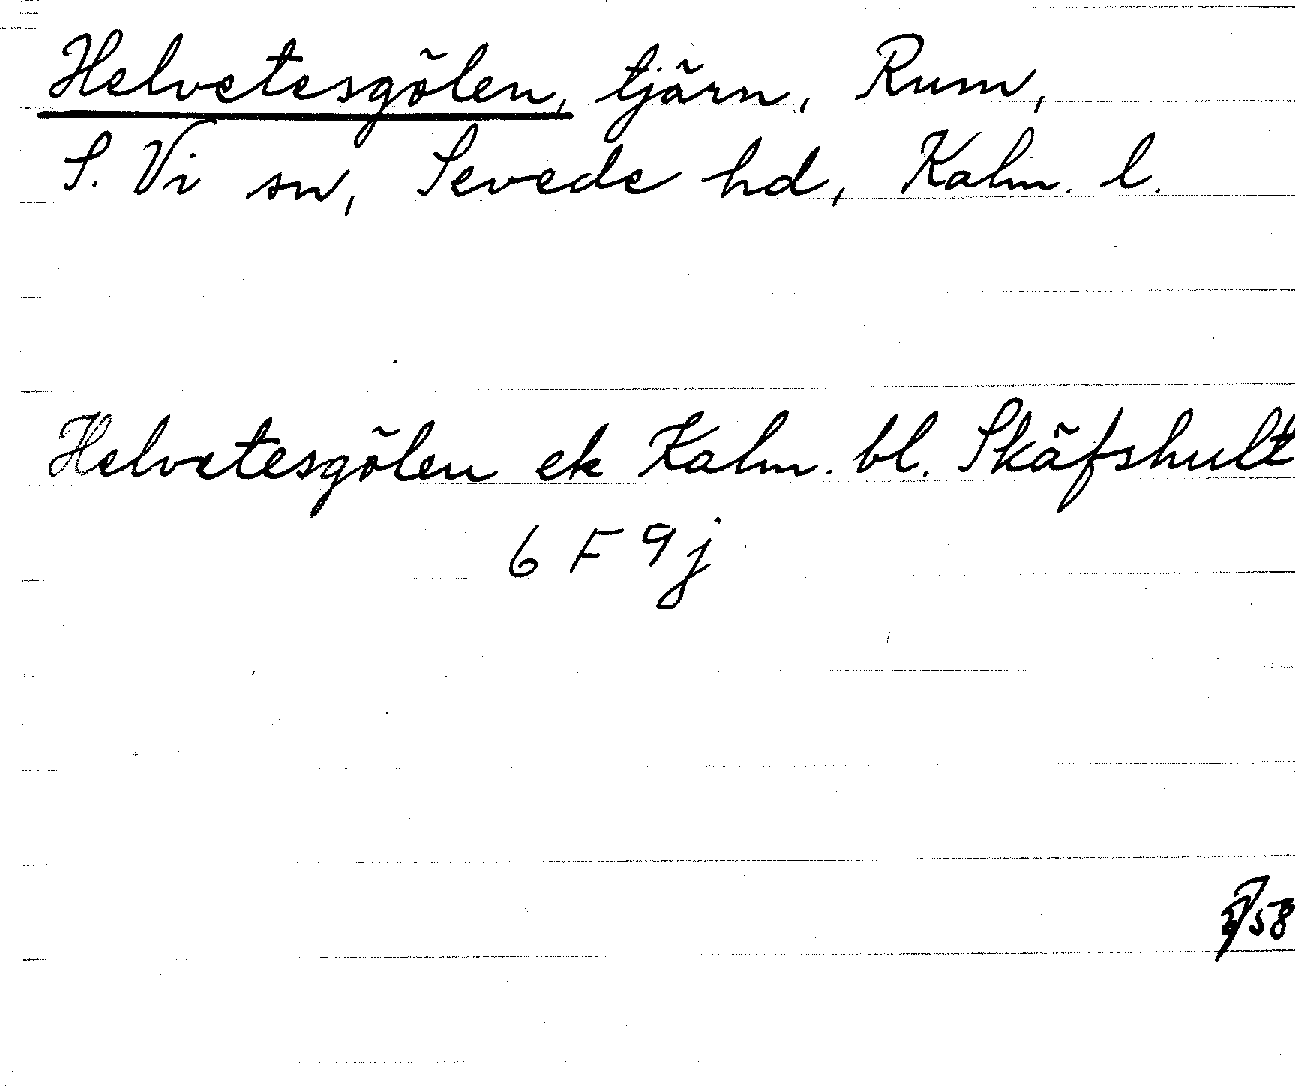 Helvetesgölen, tjärn, Rum,
S. Vi sn, Sevede hd, Kalm. l.
Helvetesgölen ek Kalm. bl. Skäfshult
6 F 9 j
58